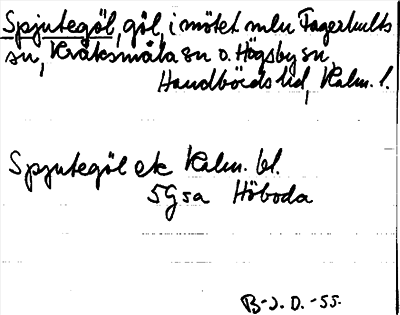 Spjutegöl, göl, i mötet mln Fagerhults
sn, Kråksmåla sn o. Högsby sn,
Handbörds hd, Kalm. l.
Spjutegöl ek Kalm. bl.
5G5a Höboda
B-J. D. -55.